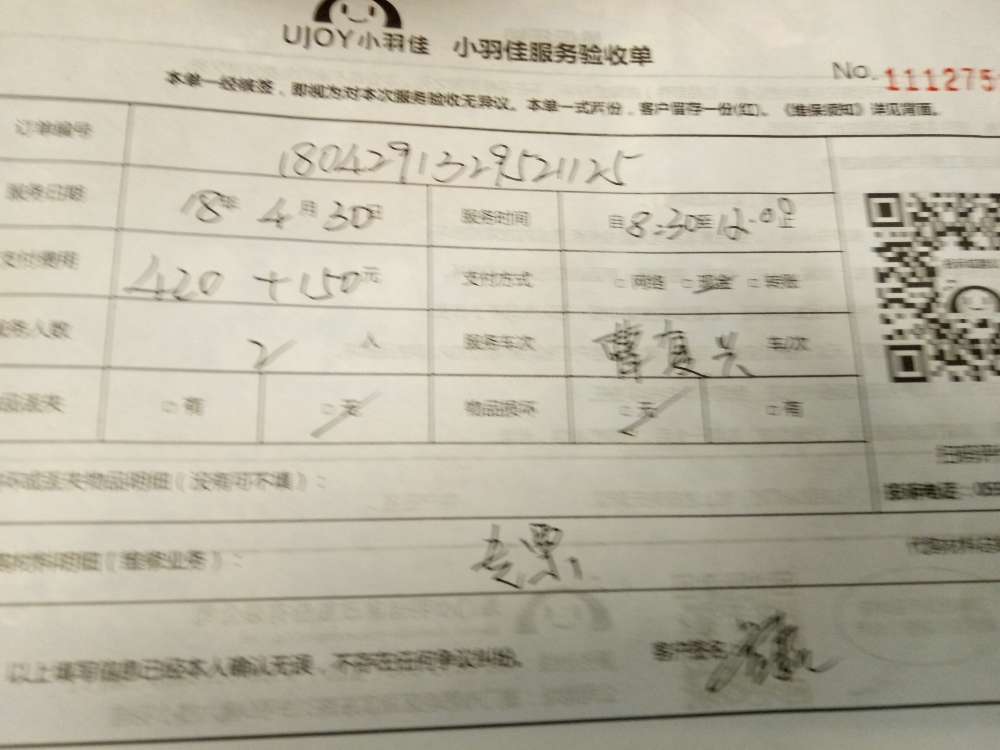 UJOY小羽佳 小羽佳服务验收单
No. 111275
本单一经被签，即视为对本次服务验收无异议。本单一式两份，客户留存一份(红)。《维保须知》详见背面。
订单编号 1804291329521125
服务日期 18年4月30日 服务时间 自8:30至12:00止
支付费用 420+150元 支付方式 □网络 □现金 □转账
服务人数 2人 服务车次 曹复兴 车/次
品丢失 □有 □无 物品损坏 □无 □有
坏或丢失物品明细（没有可不填）：
购材料明细（维修业务）： 专票
以上填写信息已经本人确认无误，不存在任何争议纠纷。 客户签名